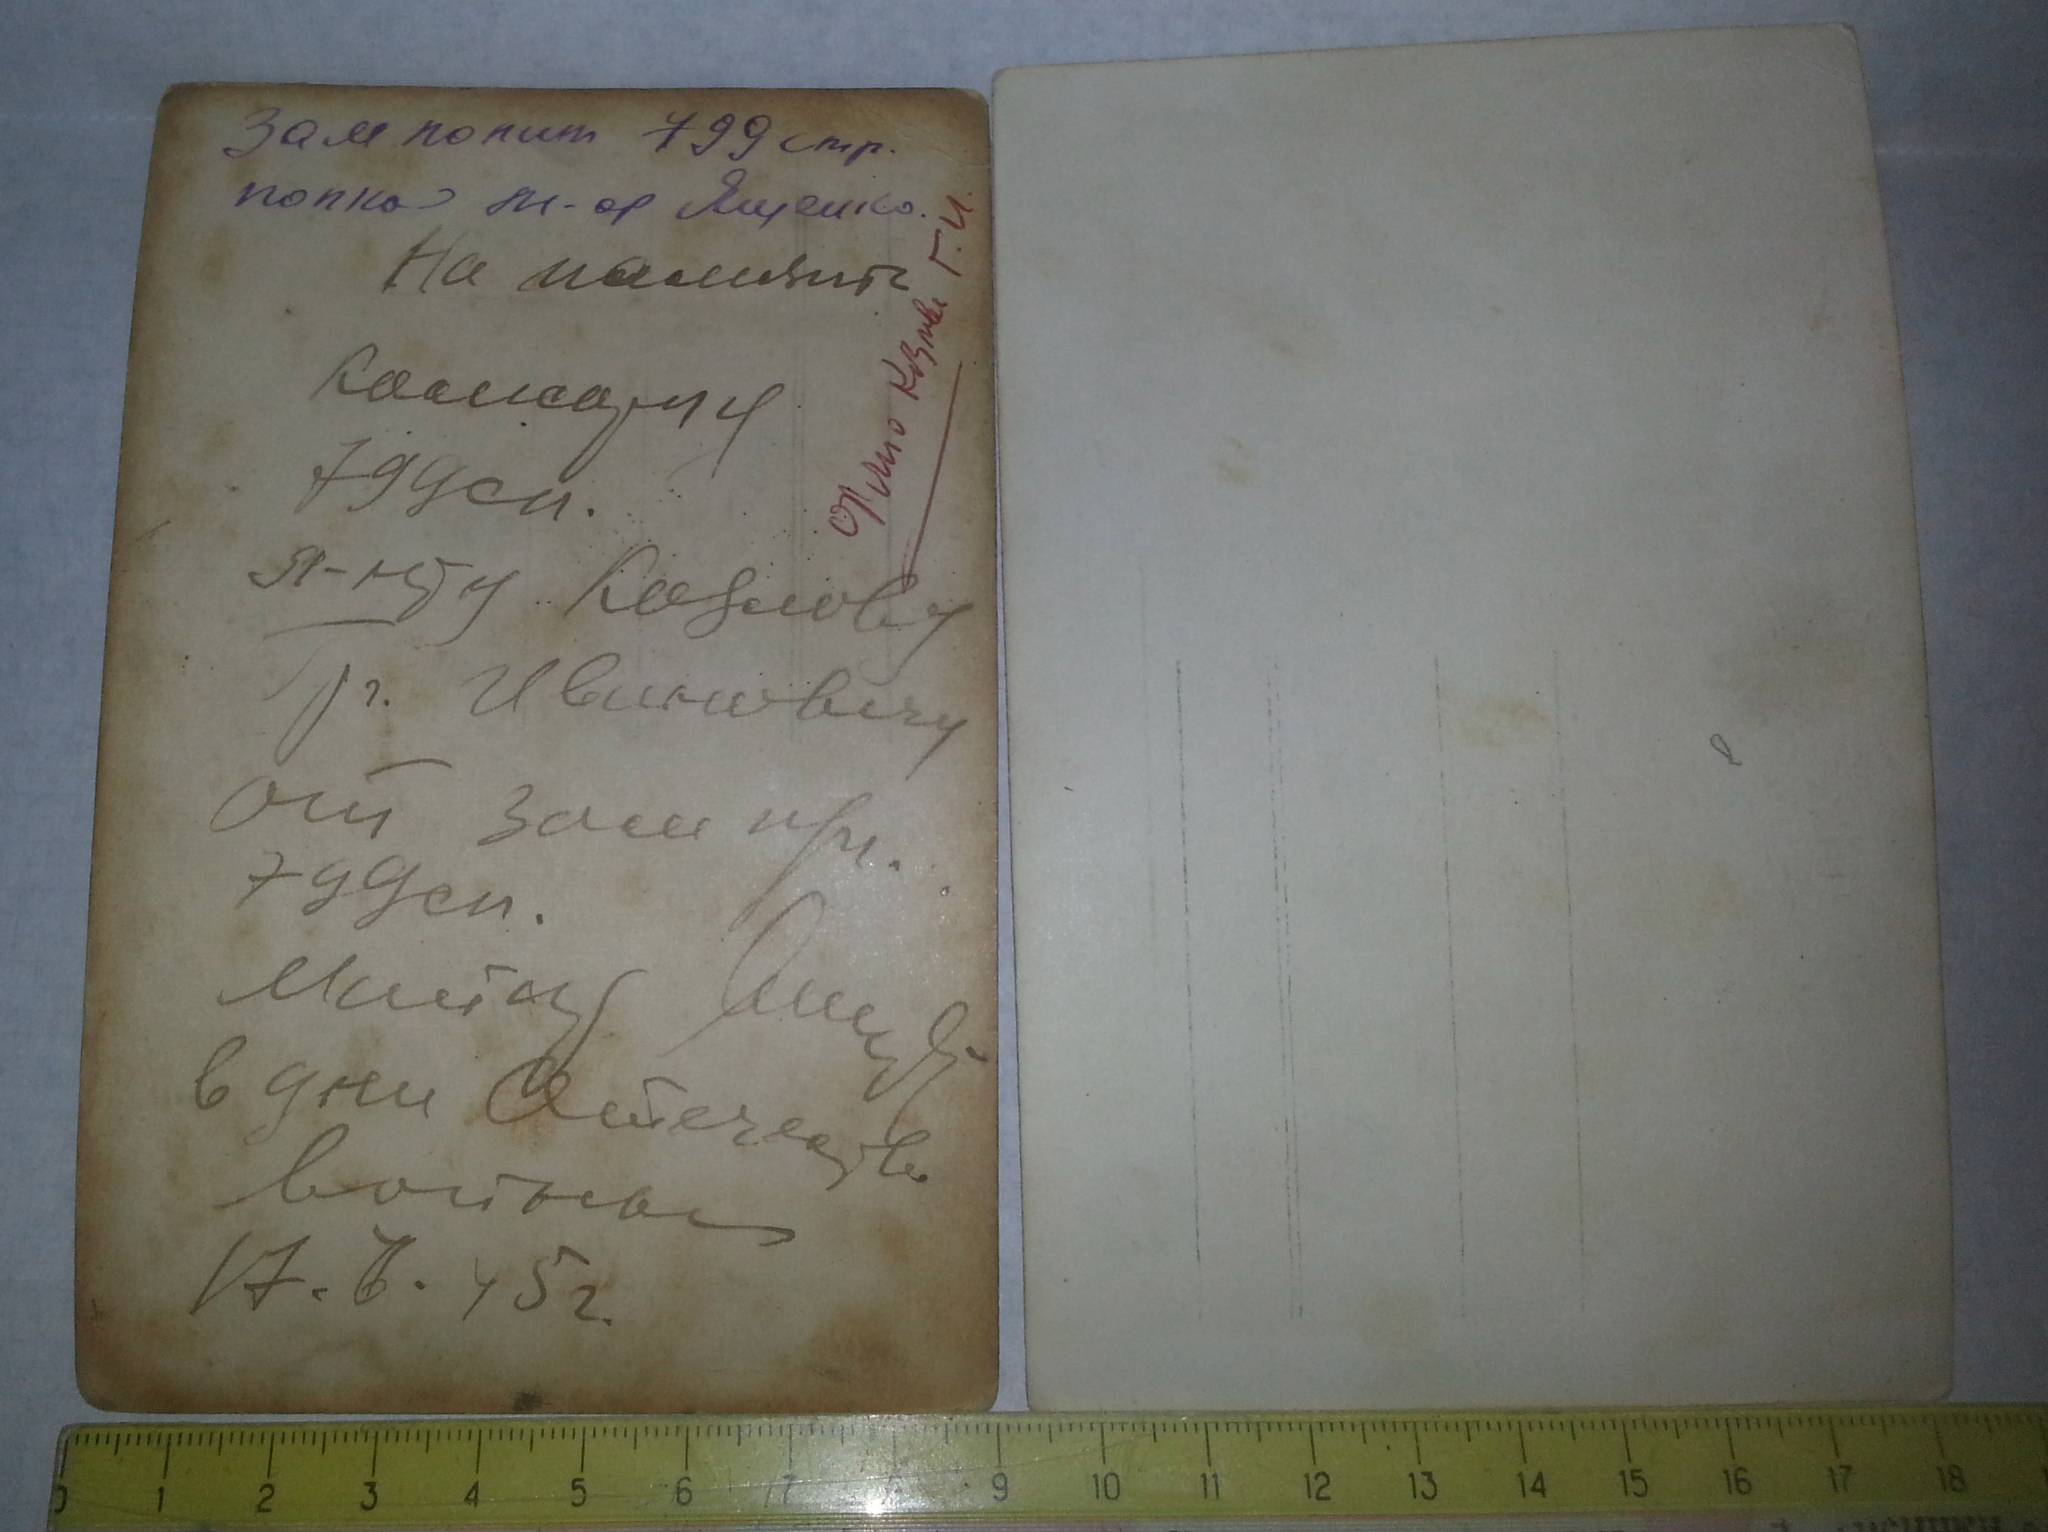 Зам полит 799 стр.
полка м-ор Ященко.
На память
Командиру
799 сп.
п-п-ку Козлову
Гр. Ивановичу
от зам
799 сп.
в дни Отечеств.
войны
17. 45 г.
Козлов Г.И.
0 1 2 3 4 5 6 7 8 9 10 11 12 13 14 15 16 17 18